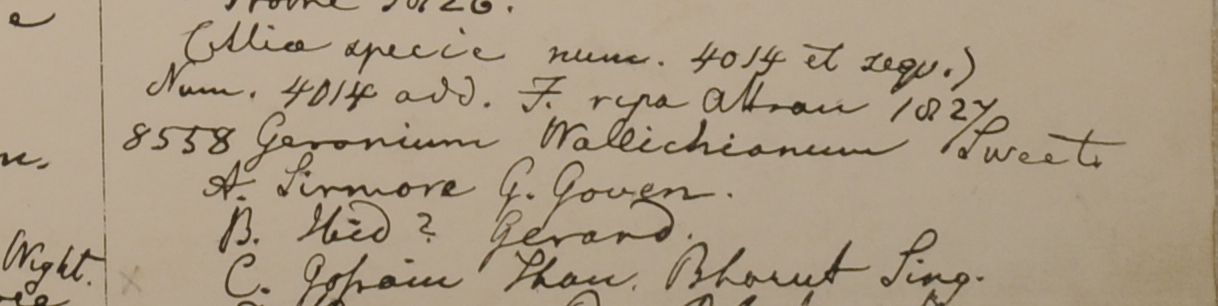 1826.
(Aliae specie num. 4014 et sequ.)
Num. 4014 add. F. ripa Attran 1827
8558 Geranium Wallichianum Sweet
A. Sirmore G. Goven.
B. Ibid? Gerard.
n.
C. Gosain Than. Bharut Sing.
Wight.